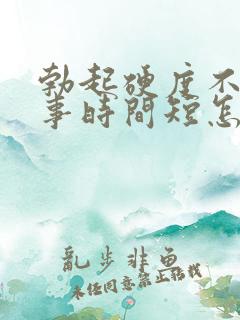 勃起硬度不
事時間短怎
亂步非魚
未经同意禁止转载